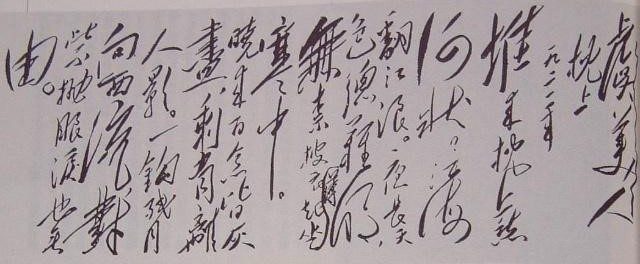 虞美人
枕上
一九二一年
堆来枕上愁
何状？江海
翻江浪。夜长天
色总难明，
無奈披衣起坐薄
寒中。
晓来百念皆灰
盡，剩有離
人影。一钩残月
向西流，對
此不抛眼泪也無
由。